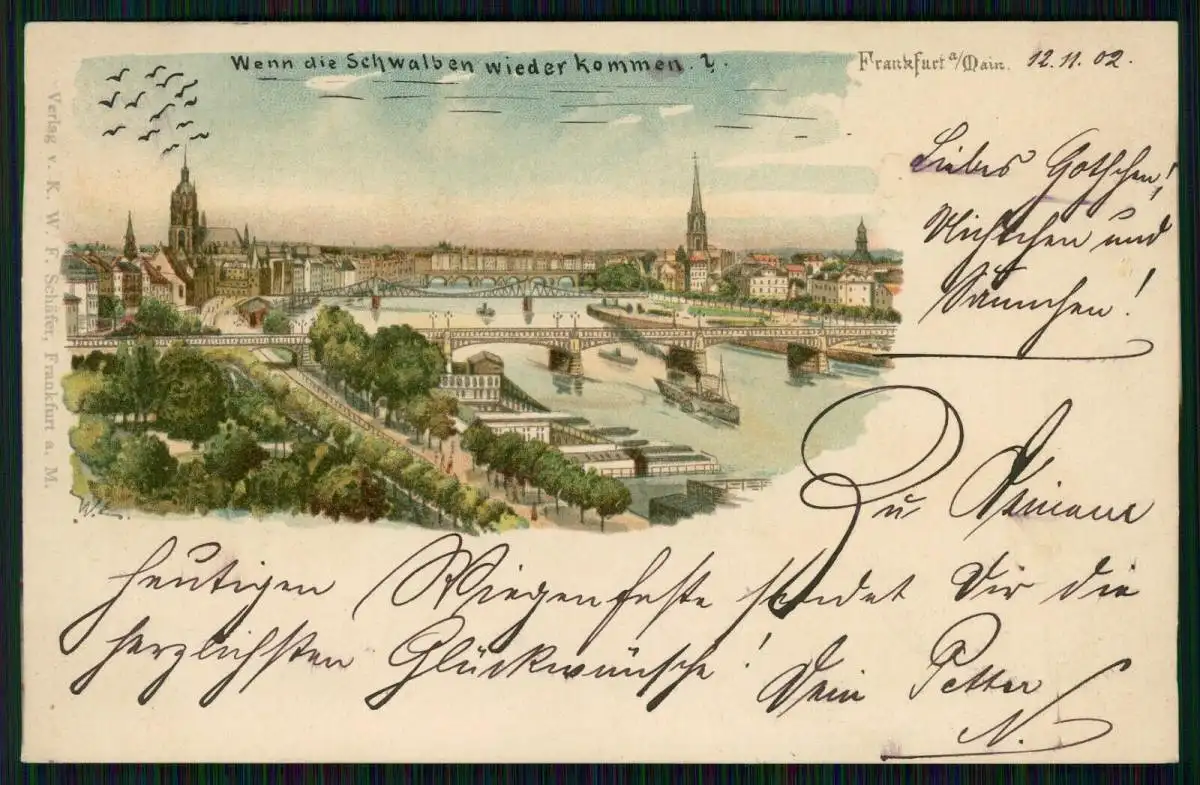 Wenn die Schwalben wieder kommen. ?.
Frankfurt a/Main. 12.11.02.
Liebes Gothchen!
und
Zu Deinem
heutigen Wiegenfeste sendet Dir die
herzlichsten Glückwünsche! Dein Petter
N.
Verlag v. K. W. F. Schäfer, Frankfurt a. M.